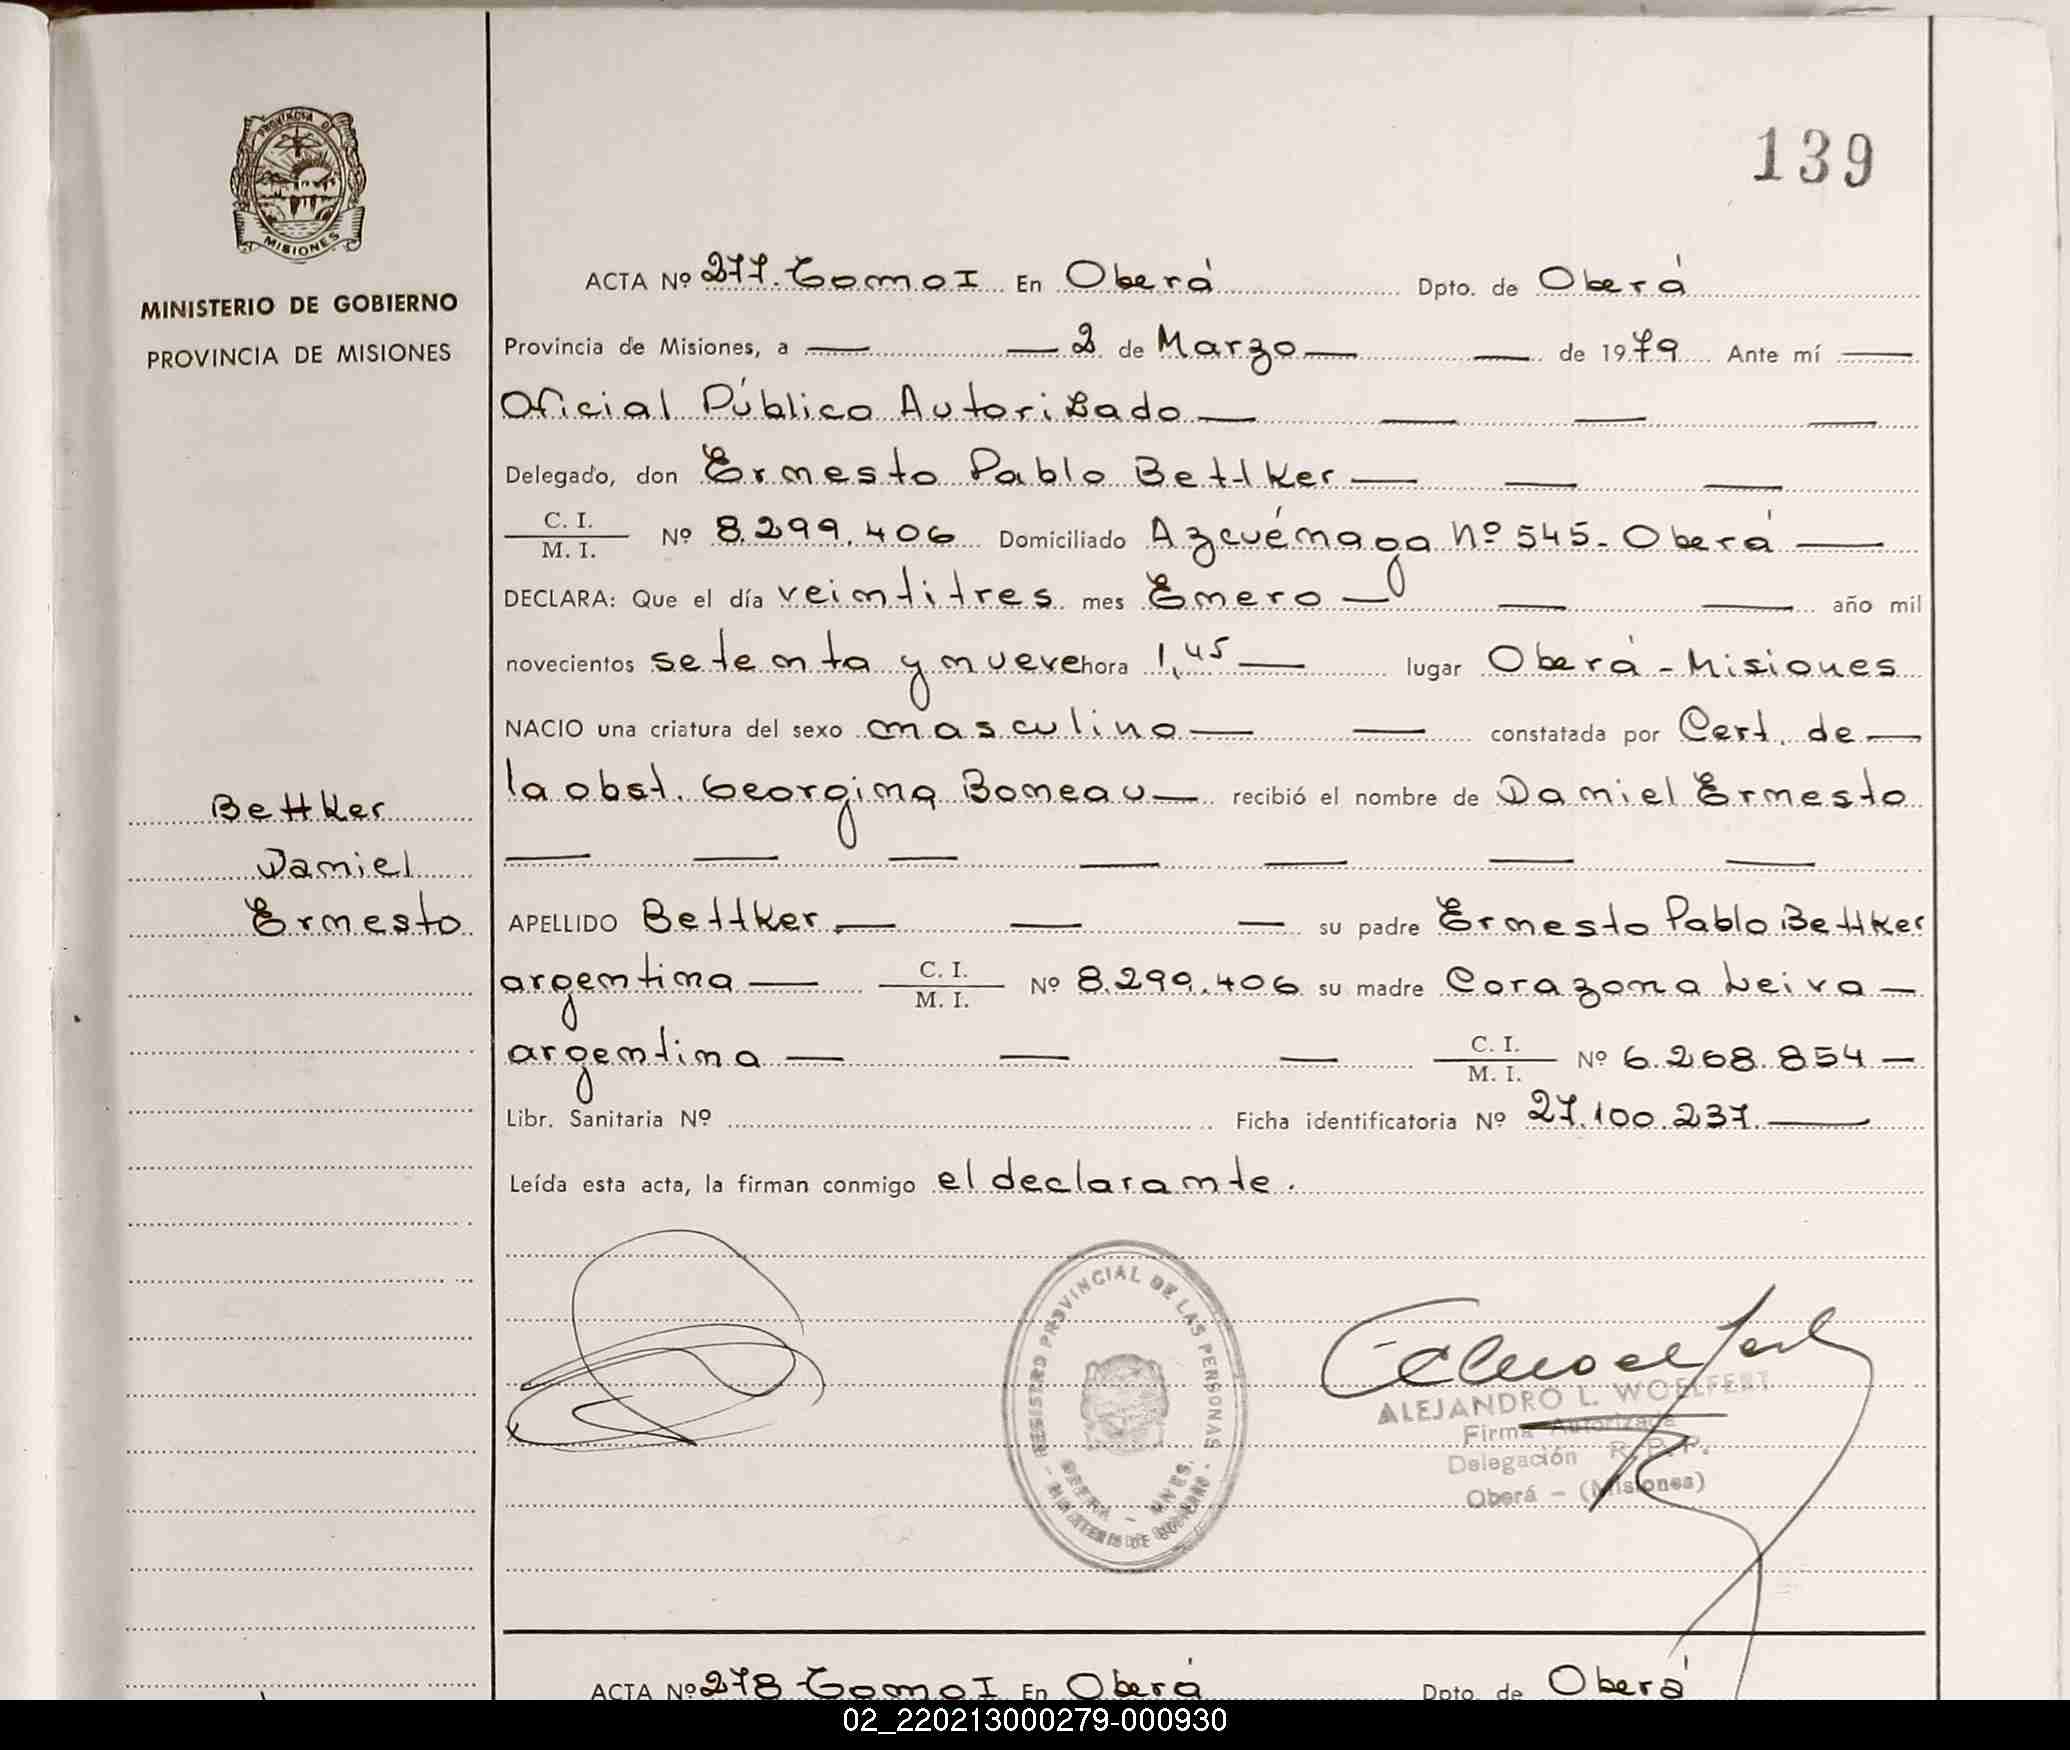 PROVINCIA DE
MISIONES
MINISTERIO DE GOBIERNO
PROVINCIA DE MISIONES
139
ACTA Nº 277. Tomo I En Oberá Dpto. de Oberá
Provincia de Misiones, a — — 2 de Marzo — — de 1979 Ante mí —
Oficial Público Autorizado — — — —
Delegado, don Ernesto Pablo Bettker — — —
C. I.
M. I. Nº 8.299.406 Domiciliado Azcuénaga Nº 545 - Oberá —
DECLARA: Que el día veintitres mes Enero — — — año mil
novecientos setenta y nueve hora 1,45 — lugar Oberá - Misiones
NACIO una criatura del sexo masculino — — constatada por Cert. de —
la obst. Georgina Boneau — recibió el nombre de Daniel Ernesto
— — — — — — —
Bettker
Daniel
Ernesto
APELLIDO Bettker — — — su padre Ernesto Pablo Bettker
argentina — C. I.
M. I. Nº 8.299.406 su madre Corazona Leiva —
argentina — — — C. I.
M. I. Nº 6.268.854 —
Libr. Sanitaria Nº Ficha identificatoria Nº 27.100.237. —
Leída esta acta, la firman conmigo el declarante.
REGISTRO PROVINCIAL DE LAS PERSONAS
OBERÁ - MNES.
- MINISTERIO DE GOBIERNO -
ALEJANDRO L. WOELFERT
Firma Autorizada
Delegación R. P. P.
Oberá - (Misiones)
ACTA Nº 278 Tomo I En Oberá Dpto. de Oberá
02_220213000279-000930